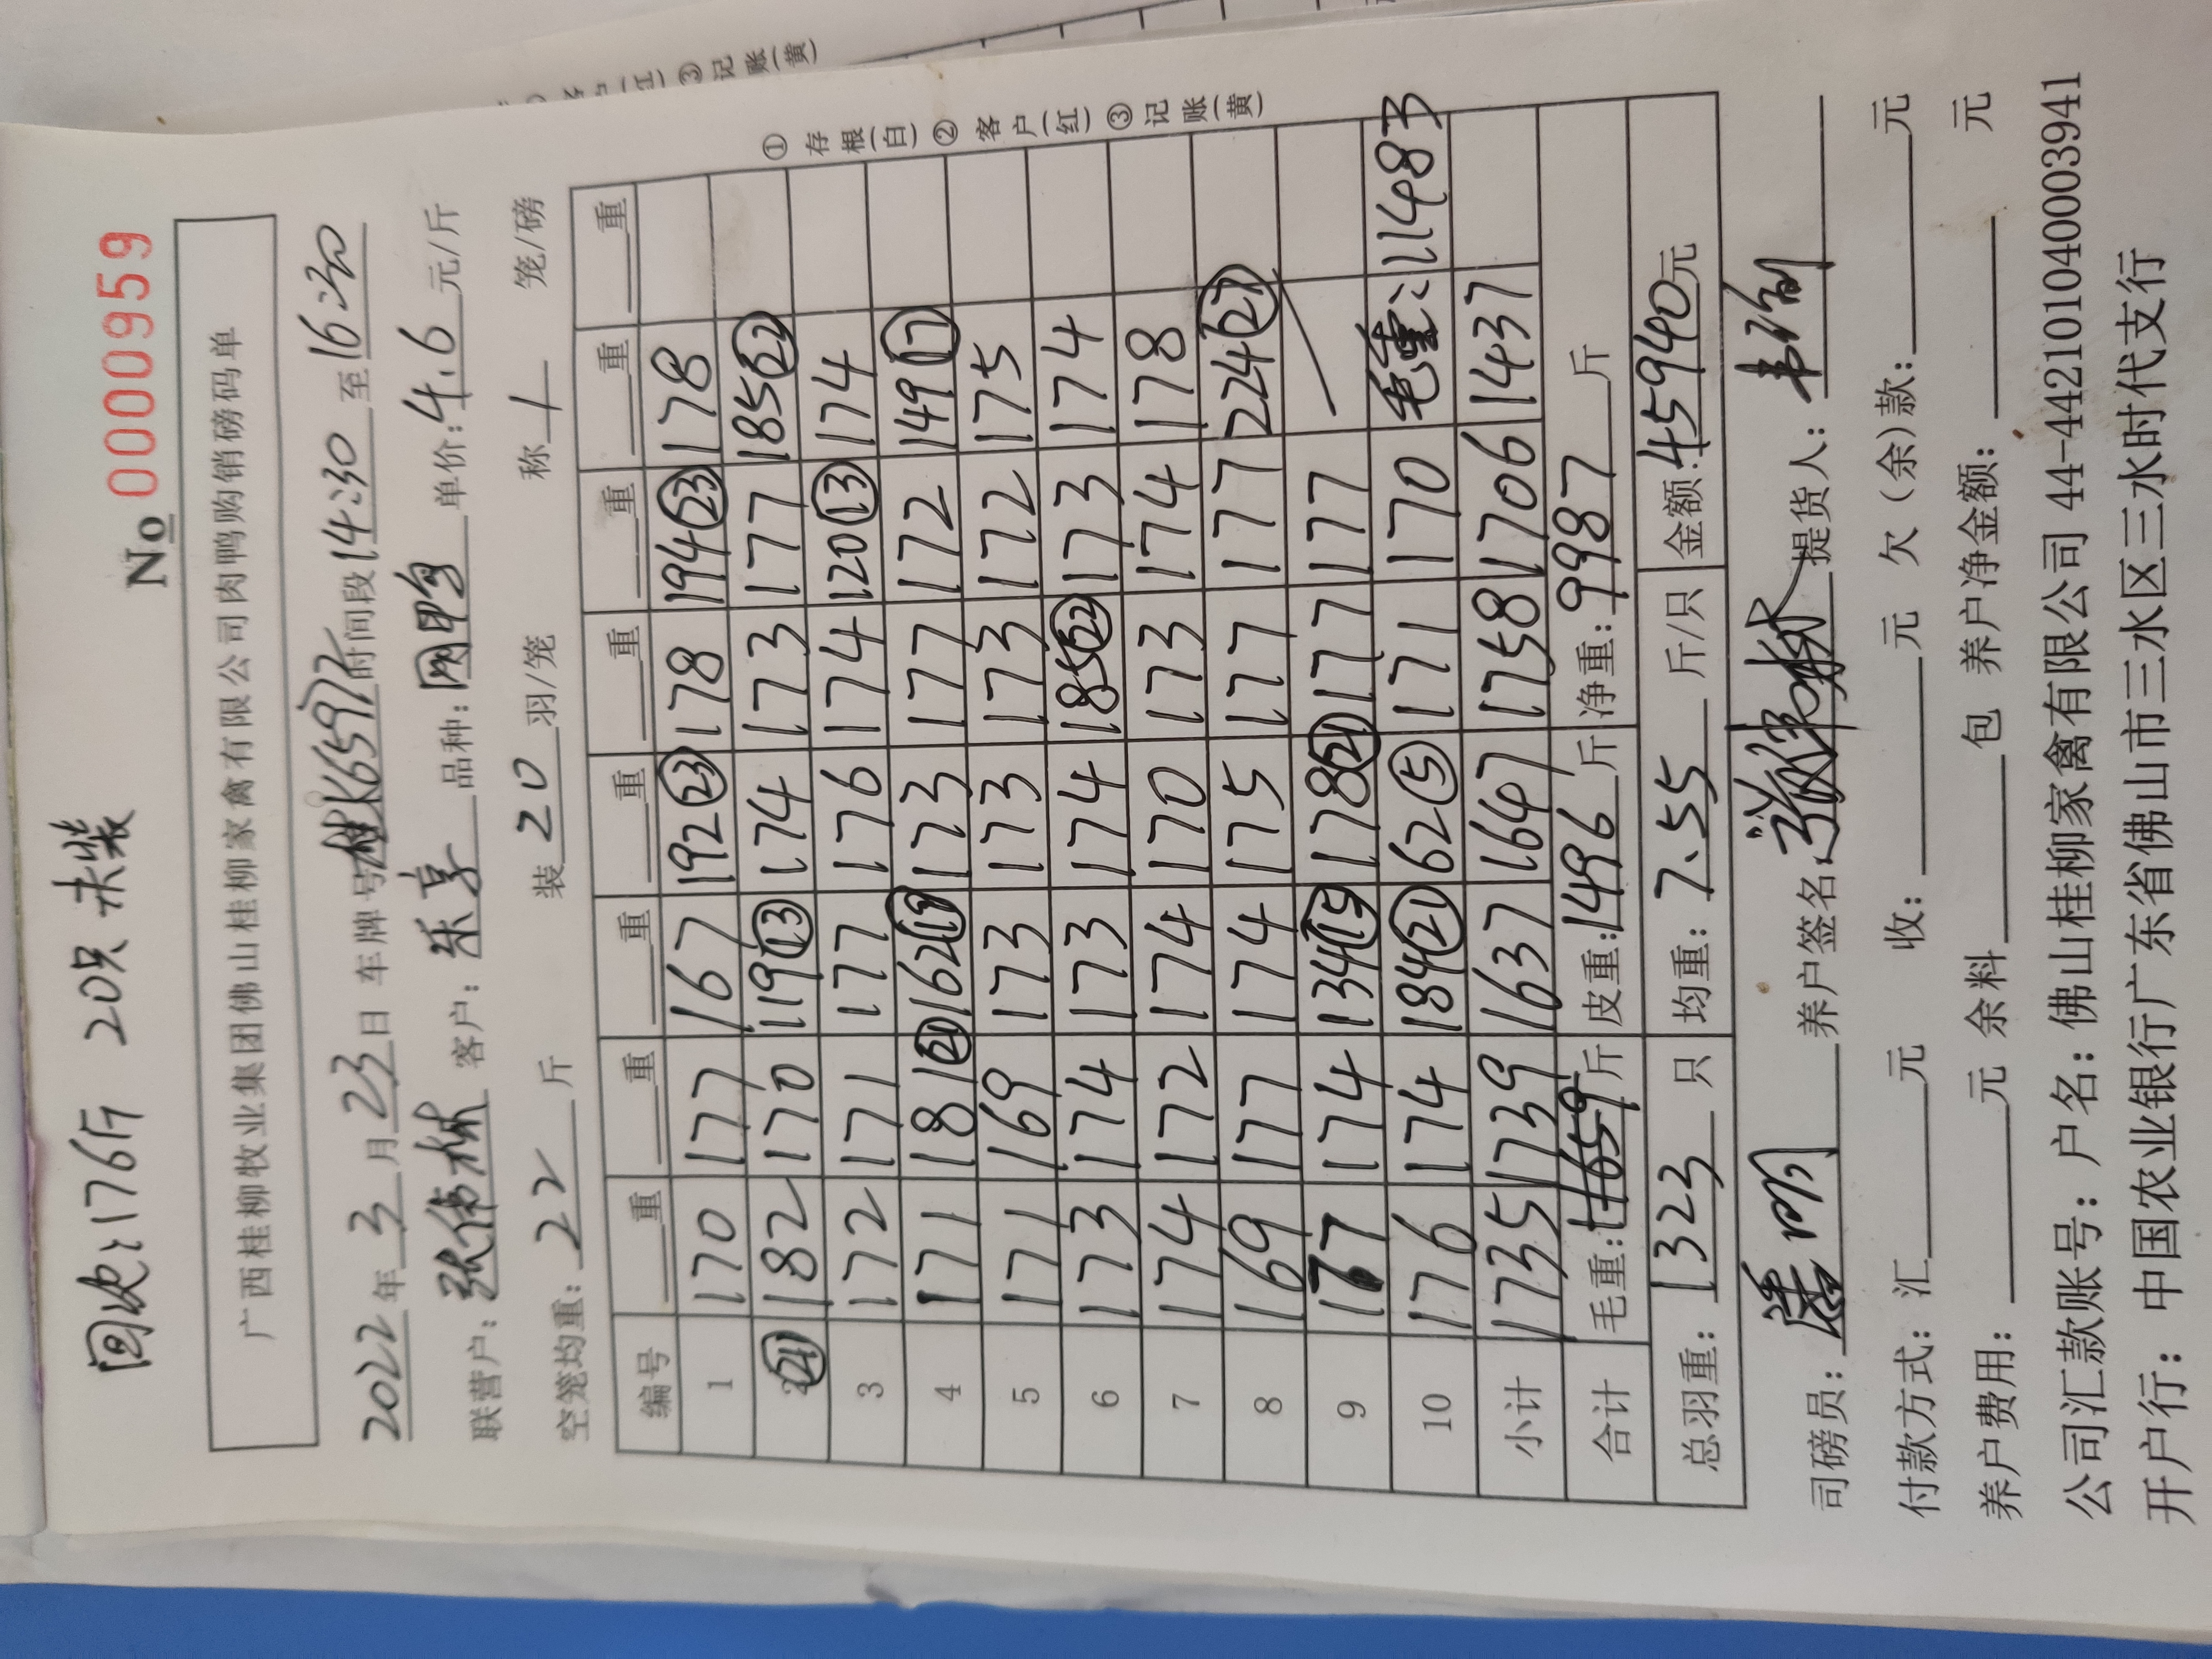 回次:176斤 20只 未装
No 0000959
广西桂柳牧业集团佛山桂柳家禽有限公司肉鸭购销磅码单
2022年3月23日 车牌号 桂K65972 时间段 14:30 至 16:30
联营户: 张伟林 客户: 乐享 品种: 网鸭 单价: 4.6 元/斤
空笼均重: 22 斤 装 20 羽/笼 称 1 笼/磅
编号 重 重 重 重 重 重 重 重
1 170 177 167 192㉓ 178 194㉓ 178
2 ㉑ 182 170 119⑬ 174 173 177 185㉒
3 172 171 177 176 174 120⑬ 174
4 171 181㉑ 162⑲ 173 177 172 149⑰
5 171 169 173 173 173 172 175
6 173 174 173 174 185㉒ 173 174
7 174 172 174 170 173 174 178
8 169 177 174 175 177 177 224㉗
9 177 174 134⑮ 178㉑ 177 177
10 176 174 184㉑ 62⑤ 171 170 毛重: 11483
小计 1735 1739 1637 1647 1758 1706 1437
合计 毛重: 斤 皮重: 1496 斤 净重: 9987 斤
总羽重: 1323 只 均重: 7.55 斤/只 金额: 45940元
司磅员: 养户签名: 张伟林 提货人:
付款方式: 汇 元 收: 元 欠(余)款: 元
养户费用: 元 余料 包 养户净金额: 元
公司汇款账号: 户名: 佛山桂柳家禽有限公司 44-442101040003941
开户行: 中国农业银行广东省佛山市三水区三水时代支行
①存根(白)②客户(红)③记账(黄)
③记账(黄)